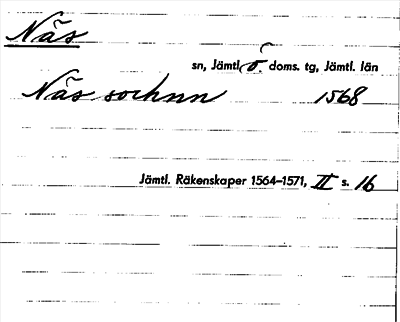 Näs
sn, Jämtl. ö. doms. tg, Jämtl. län
Näs sochnn 1568
Jämtl. Räkenskaper 1564–1571, II s. 16